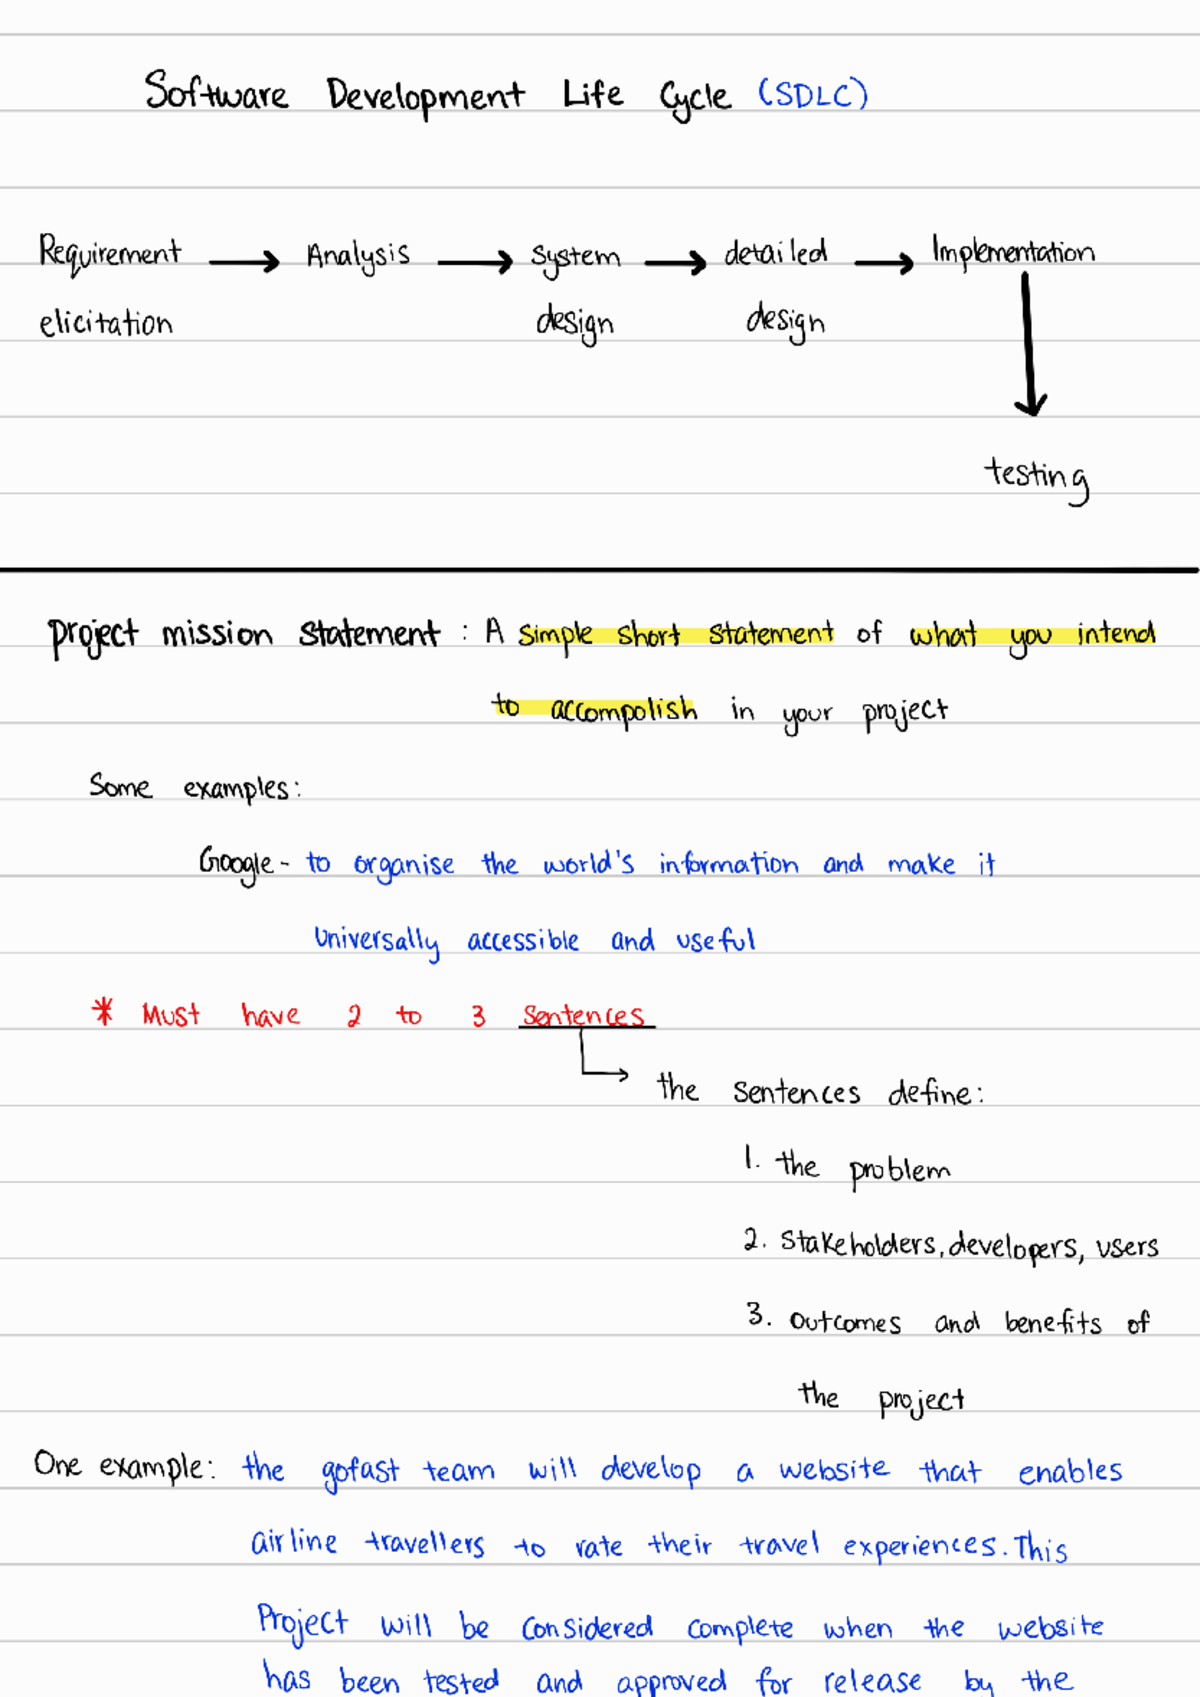 Software Development Life Cycle (SDLC)
Requirement → Analysis → System → detailed → Implementation
elicitation design design
testing
project mission statement : A simple short statement of what you intend
to accompolish in your project
Some examples:
Google - to organise the world's information and make it
Universally accessible and useful
* Must have 2 to 3 Sentences
the sentences define:
1. the problem
2. Stakeholders, developers, users
3. Outcomes and benefits of
the project
One example: the gofast team will develop a website that enables
airline travellers to rate their travel experiences. This
Project will be considered complete when the website
has been tested and approved for release by the